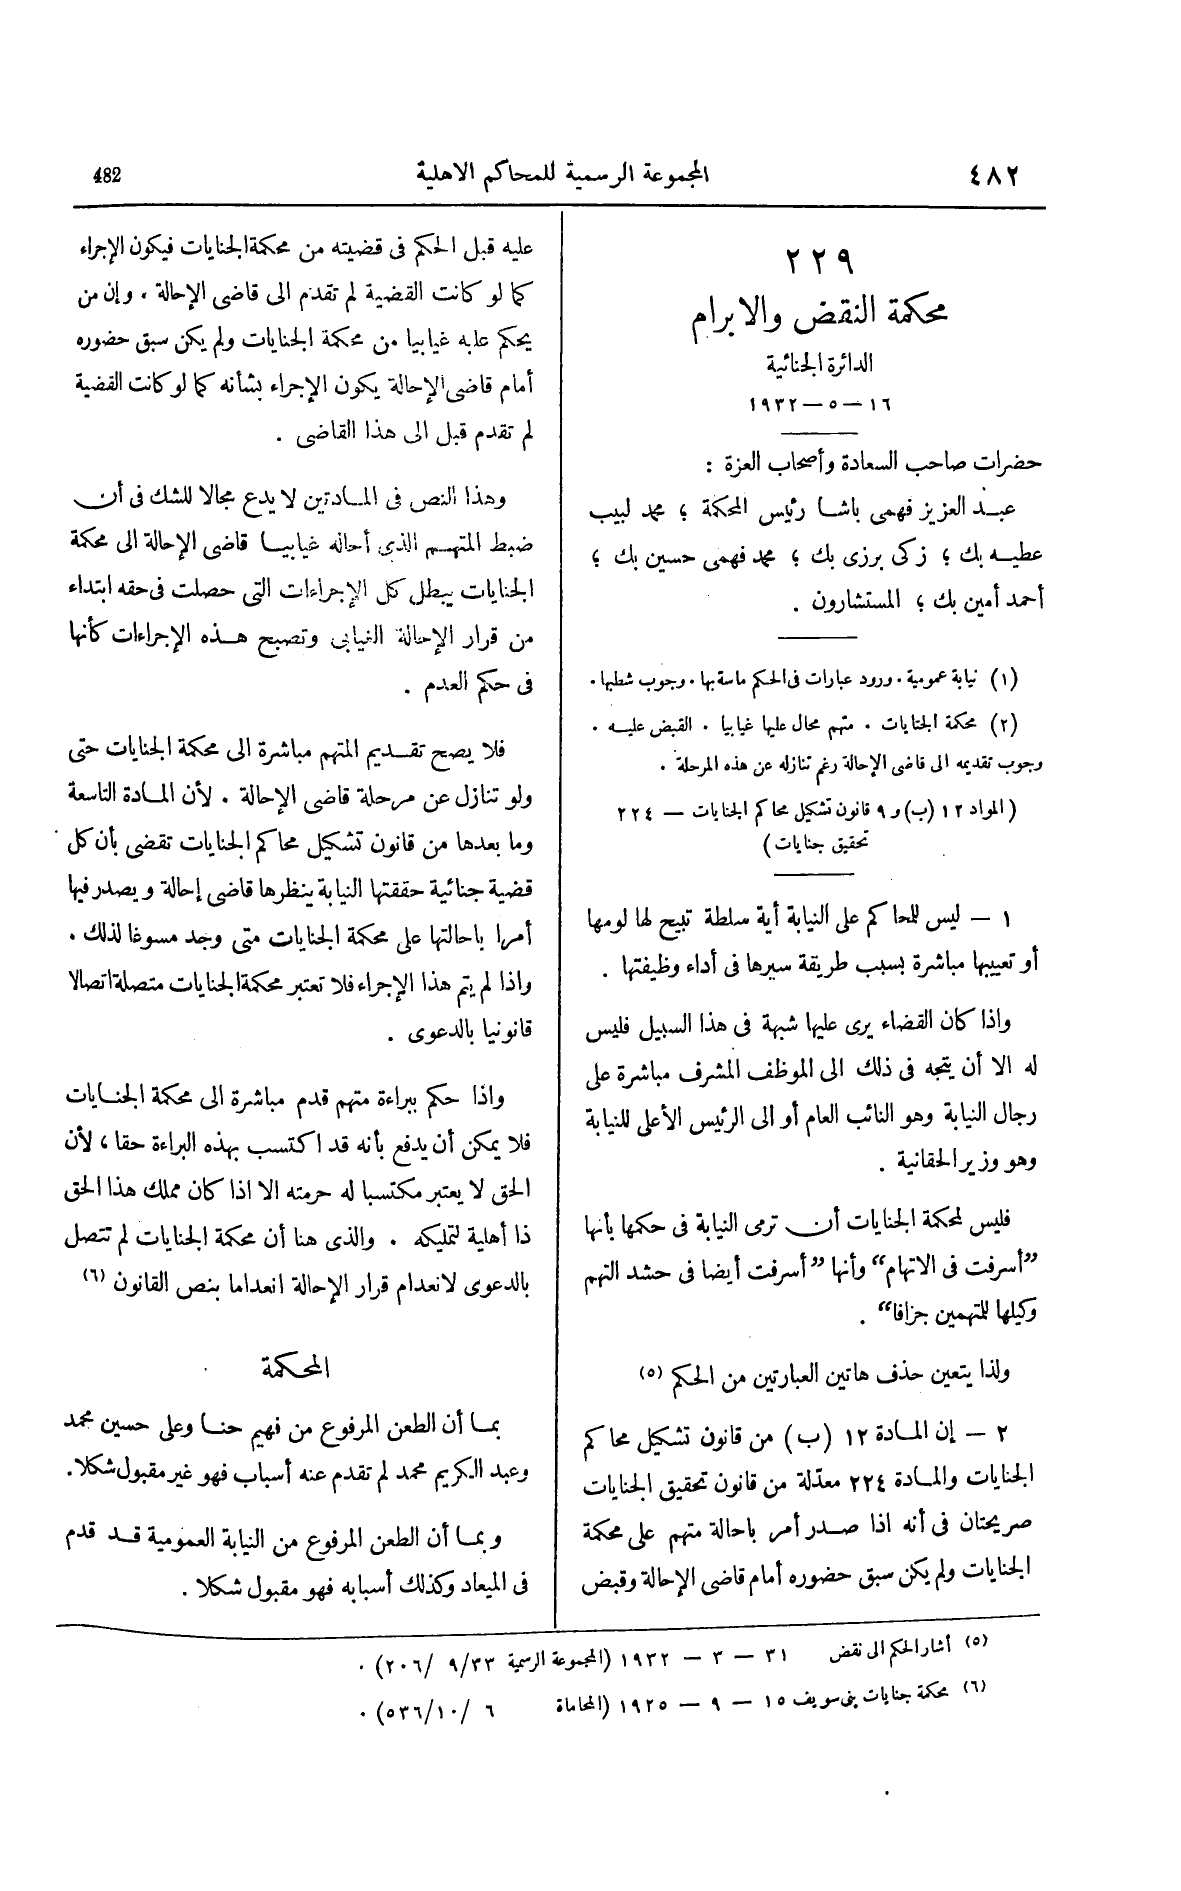 ٤٨٢
المجموعة الرسمية للمحاكم الاهلية
482
٢٢٩
محكمة النقض والابرام
الدائرة الجنائية
١٦ — ٥ — ١٩٣٢
حضرات صاحب السعادة وأصحاب العزة :
عبد العزيز فهمى باشا رئيس المحكمة ؛ محمد لبيب
عطيه بك ؛ زكى برزى بك ؛ محمد فهمى حسين بك ؛
أحمد أمين بك ؛ المستشارون .
(١) نيابة عمومية . ورود عبارات فى الحكم ماسة بها . وجوب شطبها .
(٢) محكمة الجنايات . متهم محال عليها غيابيا . القبض عليه .
وجوب تقديمه الى قاضى الإحالة رغم تنازله عن هذه المرحلة .
( المواد ١٢ (ب) و ٩ قانون تشكيل محاكم الجنايات — ٢٢٤
تحقيق جنايات )
١ — ليس للمحاكم على النيابة أية سلطة تبيح لها لومها
أو تعييبها مباشرة بسبب طريقة سيرها فى أداء وظيفتها .
واذا كان القضاء يرى عليها شبهة فى هذا السبيل فليس
له الا أن يتجه فى ذلك الى الموظف المشرف مباشرة على
رجال النيابة وهو النائب العام أو الى الرئيس الأعلى للنيابة
وهو وزير الحقانية .
فليس لمحكمة الجنايات أن ترمى النيابة فى حكمها بأنها
”أسرفت فى الاتهام“ وأنها ”أسرفت أيضا فى حشد التهم
وكيلها للمتهمين جزافا“ .
ولذا يتعين حذف هاتين العبارتين من الحكم (٥)
٢ — إن المادة ١٢ (ب) من قانون تشكيل محاكم
الجنايات والمادة ٢٢٤ معدّلة من قانون تحقيق الجنايات
صريحتان فى أنه اذا صدر أمر باحالة متهم على محكمة
الجنايات ولم يكن سبق حضوره أمام قاضى الإحالة وقبض
عليه قبل الحكم فى قضيته من محكمة الجنايات فيكون الإجراء
كما لو كانت القضية لم تقدم الى قاضى الإحالة ، وإن من
يحكم عليه غيابيا من محكمة الجنايات ولم يكن سبق حضوره
أمام قاضى الإحالة يكون الإجراء بشأنه كما لو كانت القضية
لم تقدم قبل الى هذا القاضى .
وهذا النص فى المادتين لا يدع مجالا للشك فى أن
ضبط المتهم الذى أحاله غيابيا قاضى الإحالة الى محكمة
الجنايات يبطل كل الإجراءات التى حصلت فى حقه ابتداء
من قرار الإحالة الغيابى وتصبح هذه الإجراءات كأنها
فى حكم العدم .
فلا يصح تقديم المتهم مباشرة الى محكمة الجنايات حتى
ولو تنازل عن مرحلة قاضى الإحالة . لأن المادة التاسعة
وما بعدها من قانون تشكيل محاكم الجنايات تقضى بأن كل
قضية جنائية حققتها النيابة ينظرها قاضى إحالة ويصدر فيها
أمرا باحالتها على محكمة الجنايات متى وجد مسوغا لذلك .
واذا لم يتم هذا الإجراء فلا تعتبر محكمة الجنايات متصلة اتصالا
قانونيا بالدعوى .
واذا حكم ببراءة متهم قدم مباشرة الى محكمة الجنايات
فلا يمكن أن يدفع بأنه قد اكتسب بهذه البراءة حقا ، لأن
الحق لا يعتبر مكتسبا له حرمته الا اذا كان مملك هذا الحق
ذا أهلية لتمليكه . والذى هنا أن محكمة الجنايات لم تتصل
بالدعوى لانعدام قرار الإحالة انعداما بنص القانون (٦)
المحكمة
بما أن الطعن المرفوع من فهيم حنا وعلى حسين محمد
وعبد الكريم محمد لم تقدم عنه أسباب فهو غير مقبول شكلا.
وبما أن الطعن المرفوع من النيابة العمومية قد قدم
فى الميعاد وكذلك أسبابه فهو مقبول شكلا .
(٥) أشار الحكم الى نقض ٣١ — ٣ — ١٩٣٢ (المجموعة الرسمية ٩/٣٣ /٢٠٦) .
(٦) محكمة جنايات بنى سويف ١٥ — ٩ — ١٩٢٥ (المحاماة ٦ /١٠/٥٣٦) .